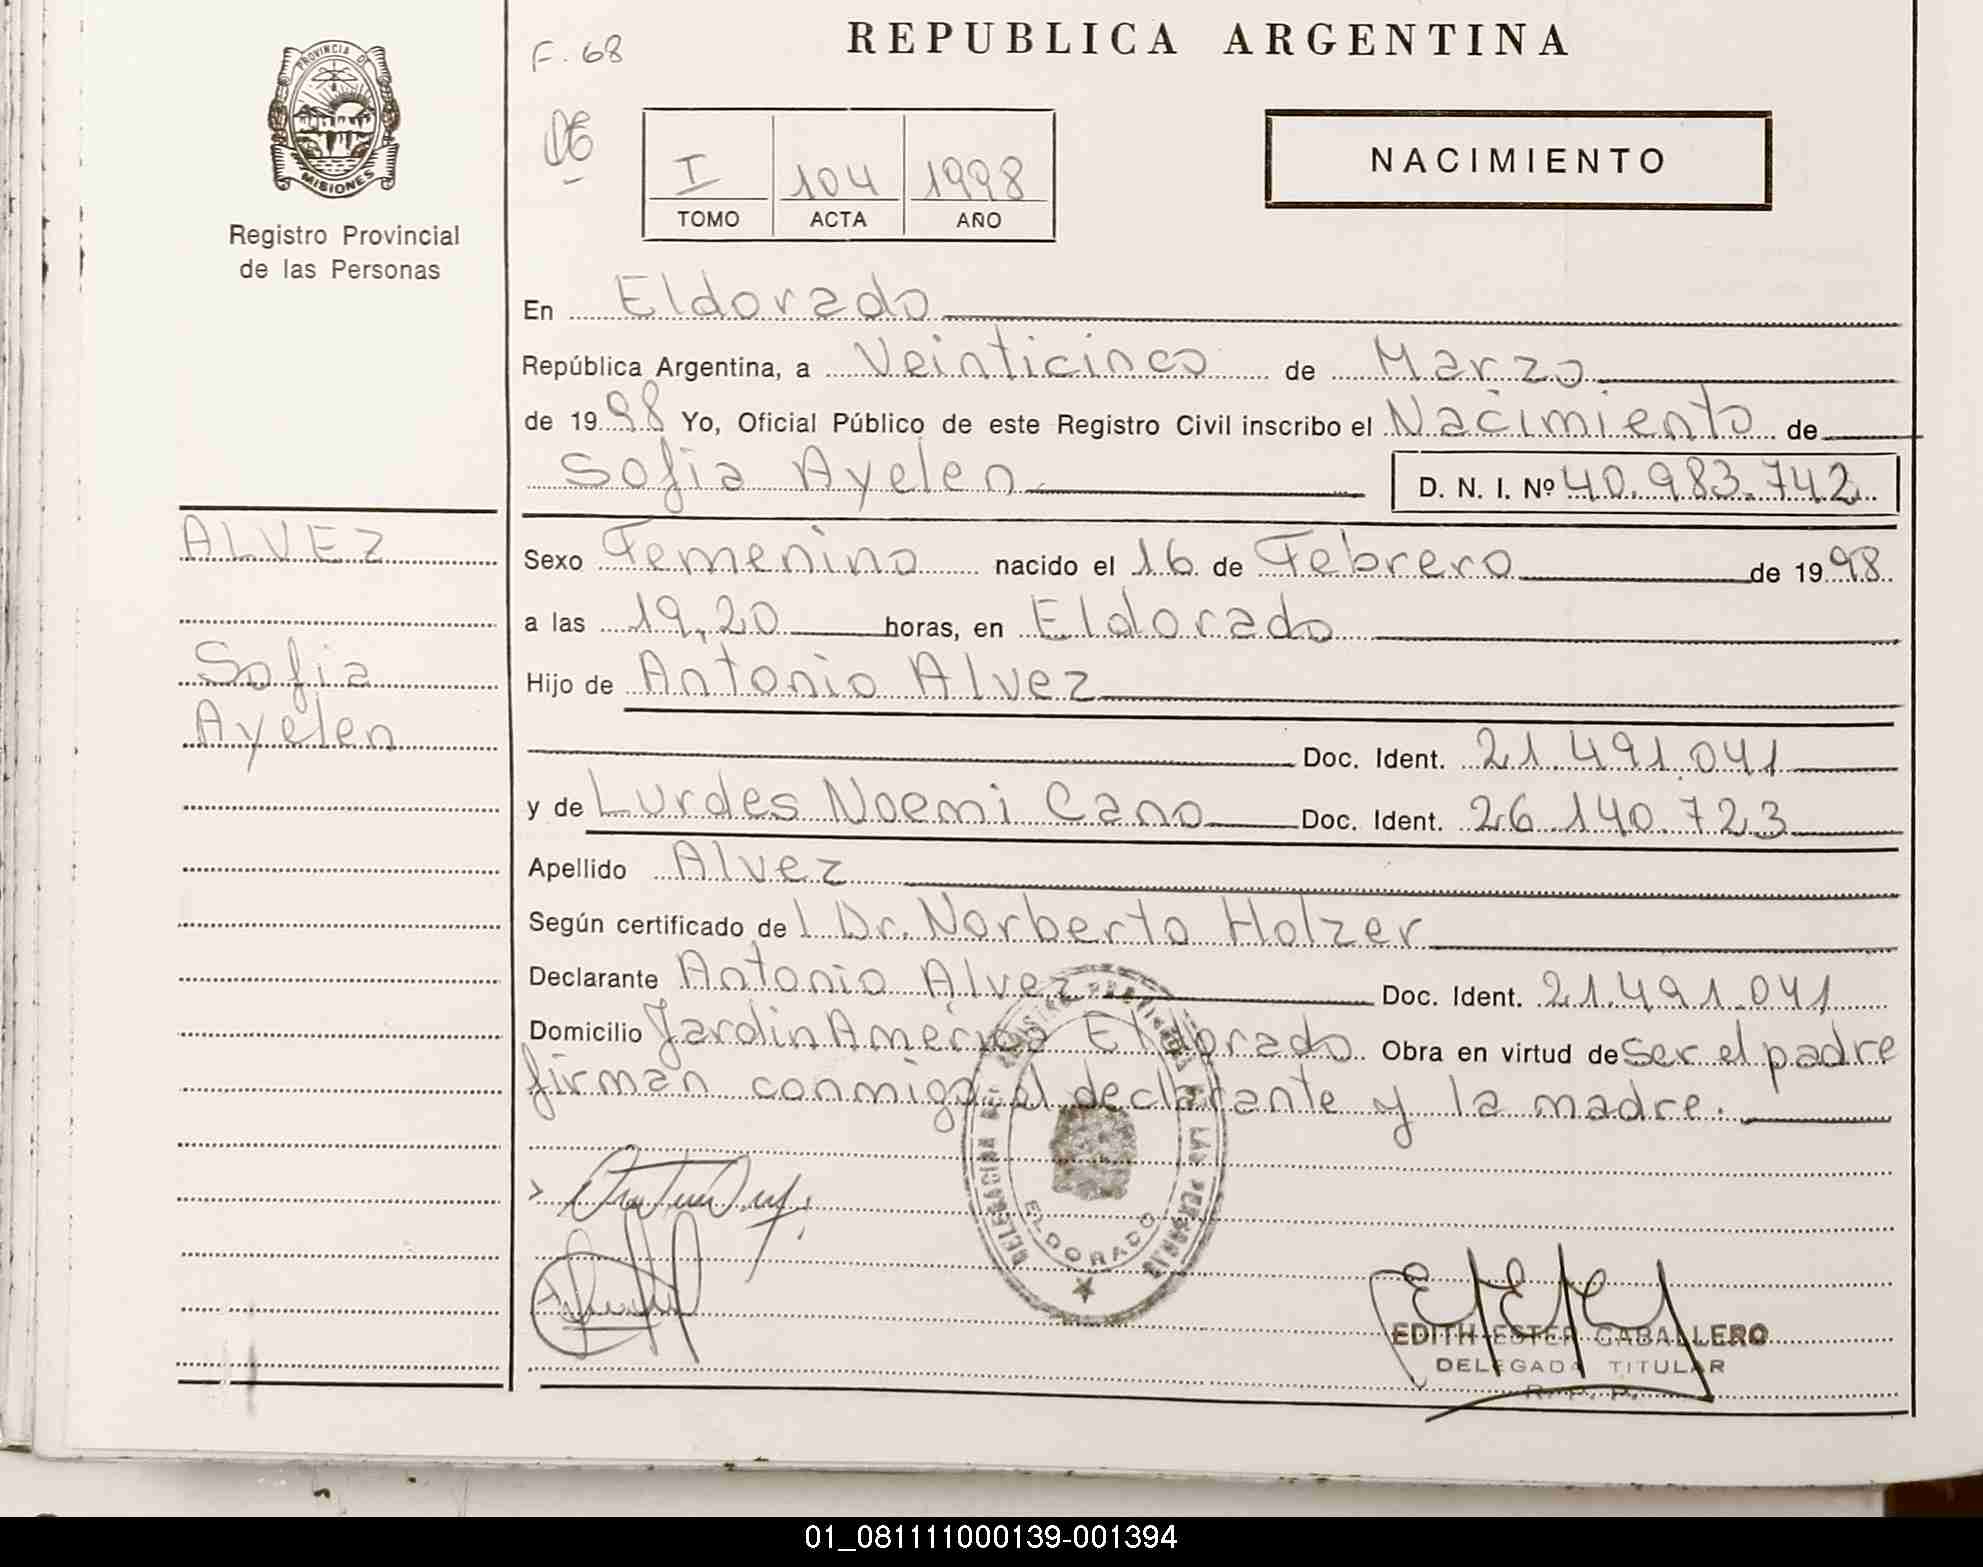 F. 68
REPUBLICA ARGENTINA
PROVINCIA DE
MISIONES
Registro Provincial
de las Personas
I 104 1998
TOMO ACTA AÑO
NACIMIENTO
En Eldorado
República Argentina, a Veinticinco de Marzo
de 1998 Yo, Oficial Público de este Registro Civil inscribo el Nacimiento de
Sofia Ayelen D. N. I. Nº 40.983.742
ALVEZ
Sofia
Ayelen
Sexo Femenino nacido el 16 de Febrero de 1998
a las 19,20 horas, en Eldorado
Hijo de Antonio Alvez
Doc. Ident. 21.491.041
y de Lurdes Noemi Cano Doc. Ident. 26.140.723
Apellido Alvez
Según certificado de l Dr. Norberto Holzer
Declarante Antonio Alvez Doc. Ident. 21.491.041
Domicilio Jardin América Eldorado Obra en virtud de ser el padre
firman conmigo el declarante y la madre.
DELEGACION DEL REGISTRO PROVINCIAL DE LAS PERSONAS
ELDORADO
EDITH ESTER CABALLERO
DELEGADA TITULAR
R. P. P.
01_081111000139-001394